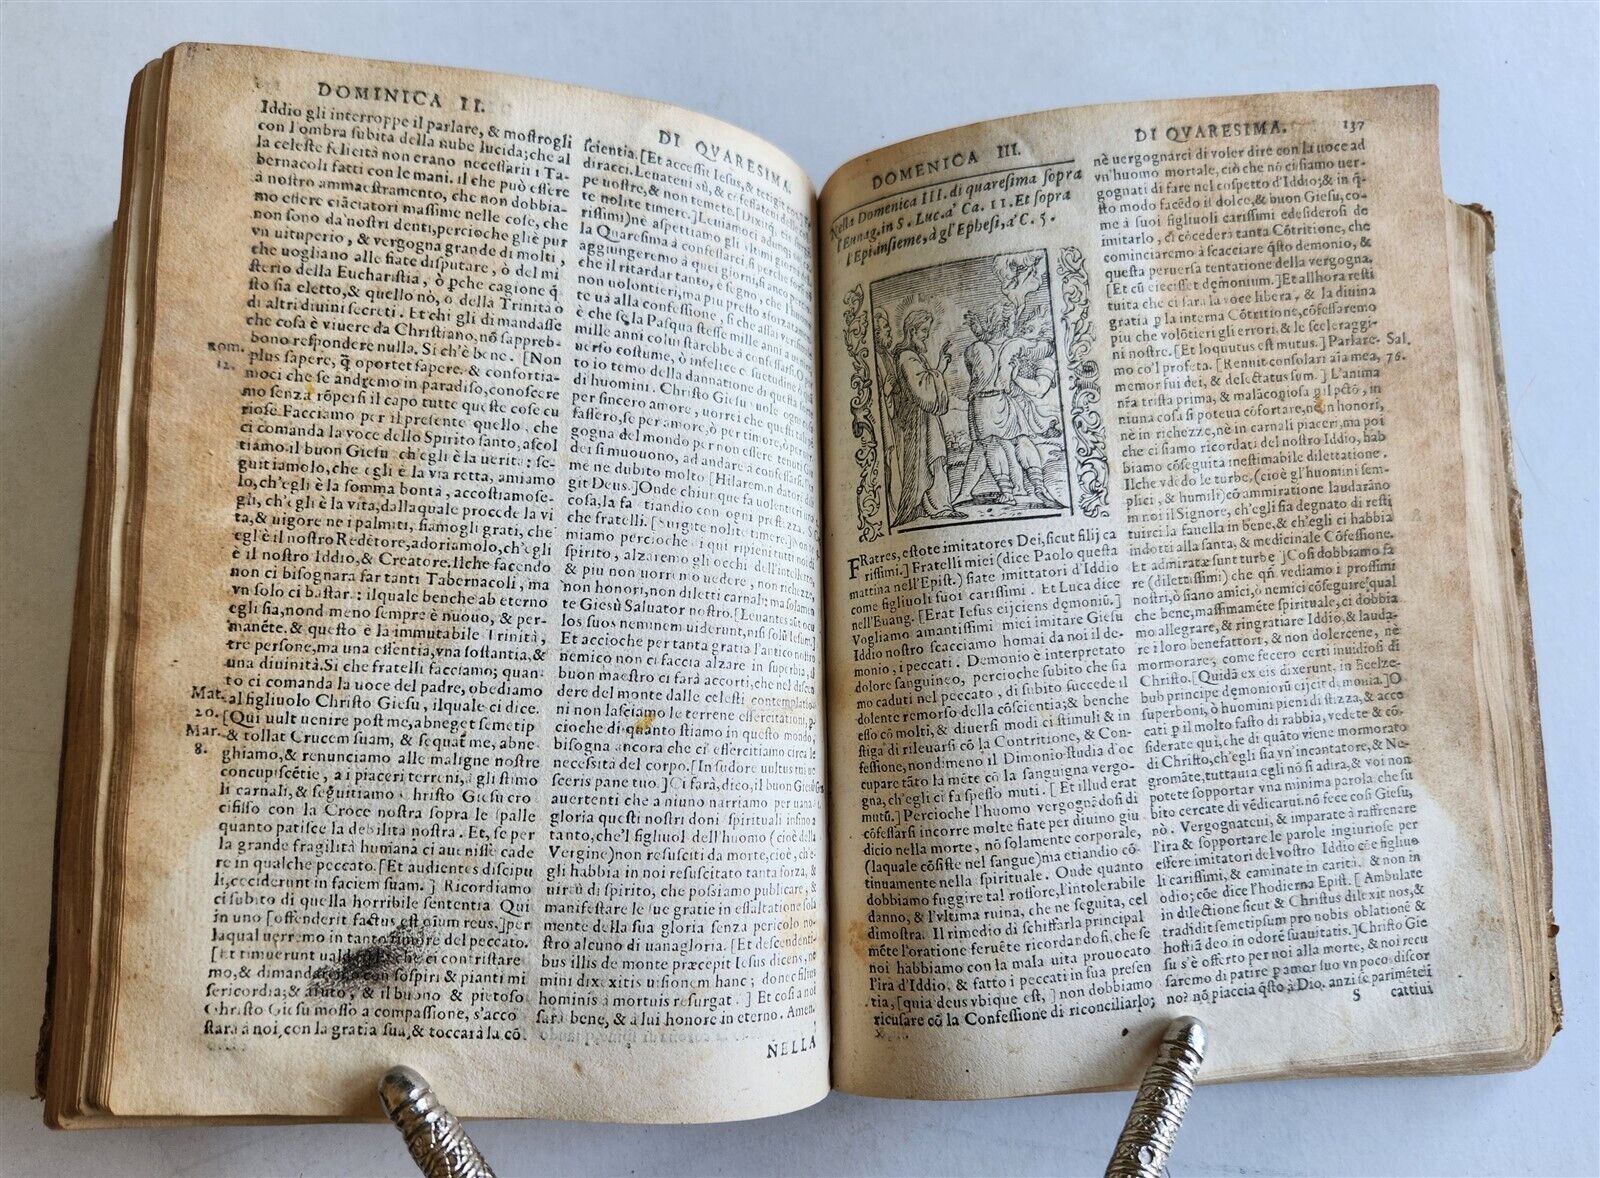 DOMINICA II.
Iddio gli interroppe il parlare, & mostrogli
con l'ombra subita della nube lucida; che al
la celeste felicità non erano necessarii i Ta-
bernacoli fatti con le mani. il che può essere
à nostro ammaestramento, che non dobbia-
mo essere ciãciatori massime nelle cose, che
non sono da nostri denti, percioche gliè pur
vn uituperio, & vergogna grande di molti,
che uogliano alle fiate disputare, ò del mi
sterio della Eucharistia, ò pche cagione q̃
sto sia eletto, & quello nò, o della Trinità ò
di altri diuini secreti. Et chi gli dimandasse
che cosa è viuere da Christiano, nõ sapreb-
bono respondere nulla. Si ch'è bene. [Non
Rom.
12.
plus sapere, q̃ oportet sapere. & confortia-
moci che se andremo in paradiso, conoscere
mo senza rõpersi il capo tutte queste cose cu
riose. Facciamo per il presente quello, che
ci comanda la voce dello Spirito santo, ascol
tiamo il buon Giesu ch'egli è la uerità: se-
guitiamolo, che egli è la via retta, amiamo
lo, ch'egli è la somma bontà, accostiamose-
li, ch'egli è la vita, dalla quale procede la vi
ta, & uigore ne i palmiti, siamogli grati, che
egl'è il nostro Redẽtore, adoriamolo, ch'egli
è il nostro Iddio, & Creatore. Ilche facendo
non ci bisognara far tanti Tabernacoli, ma
vn solo ci bastar.: il quale benche ab eterno
egli sia, nondimeno sempre è nuouo, & per-
manẽte. & questo è la immutabile Trinità,
tre persone, ma una essentia, vna sostantia, &
una diuinità. Si che fratelli facciamo; quan-
to ci comanda la uoce del padre, obediamo
Mat.
20.
al figliuolo Christo Giesu, il quale ci dice.
[Qui uult uenire post me, abneget semetip
Mar.
8.
& tollat Crucem suam, & sequat me, abne
ghiamo, & renunciamo alle maligne nostre
concupiscẽtie, a i piaceri terreni, à gli stimo
li carnali, & seguitiamo Christo Giesu cro
cifisso con la Croce nostra sopra le spalle
quanto patisce la debilità nostra. Et, se per
la grande fragilità humana ci auenisse cade
re in qualche peccato. [Et audientes discipu
li, ceciderunt in faciem suam.] Ricordiamo
ci subito di quella horribile sententia Qui
in uno [offenderit factus est oium reus.] per
laqual uerremo in tanto timore del peccato.
[Et timuerunt valde] che ci contristare
mo, & dimandaremo con sospiri & pianti mi
sericordia; & aiuto, & il buono & pietoso
Christo Giesu mosso a compassione, s'acco
starà à noi, con la gratia sua, & toccarà la cõ-
DI QVARESIMA.
scientia. [Et accessit Iesus, & tetigit
diracci. Leuateui sù, &
pe nostre, & non temete. [
te nolite timere.] Leuiamoci
rissimi) nè aspettiamo gli vltimi giorni
la Quaresima à confessarsi, perche
aggiungeremo à quei giorni, si anco
che il ritardar tanto, è segno, che
non uolontieri, ma piu presto sforzata
te uà alla confessione, si che assai
è che se la Pasqua stesse mille anni a
mille anni colui starebbe à confessarsi. O
uerso costume, ò infelice consuetudine
to io temo della dannatione di questa
di huomini. Christo Giesu uole
per sincero amore, uorrei che
fassero, se per amore, ò per timore, ò
gogna del mondo per non essere tenuti
dei si muouono, ad andare à confessarsi.
me ne dubito molto [Hilarem datorem
git Deus.] Onde chiunque fa uolentieri
cosa, la fa etiandio con ogni prestezza.
che fratelli. [Surgite nolite timere.]
miamo percioche i qui ripieni tutti
spirito, alzaremo gli occhi dell'intelletto,
& piu non uorremo uedere, non richezze,
non honori, non diletti carnali: ma solamen
te Giesù Saluator nostro. [Leuantes aut ocu
los suos neminem uiderunt, nisi solũ Iesum.]
Et accioche per tanta gratia l'antico nostro
nemico non ci faccia alzare in superbia, il
buon maestro ci farà accorti, che nel discen
dere del monte dalle celesti contemplatio
ni non lasciamo le terrene essercitationi, p
cioche di quanto stiamo in questo mondo,
bisogna ancora che ci essercitiamo circa le
necessità del corpo. [In sudore uultus tui ue
sceris pane tuo.] Ci farà, dico, il buon Giesu
auertenti che a niuno narriamo per uana
gloria questi nostri doni spirituali insino a
tanto, che'l figliuol dell'huomo (cioè della
Vergine) non resusciti da morte, cioè, ch'e-
gli habbia in noi resuscitato tanta forza, &
uirtù di spirito, che possiamo publicare, &
manifestare le sue gratie in essaltatione sola
mente della sua gloria senza pericolo no-
stro alcuno di uanagloria. [Et descendenti-
bus illis de monte præcepit Iesus dicens, ne
mini dixeritis uisionem hanc; donec filius
hominis à mortuis resurgat.] Et cosi a noi
sarà bene, & à lui honore in eterno. Amen.
NELLA
DOMENICA III.
Nella Domenica III. di quaresima sopra
l'Euuag. in S. Luc. a' Ca. 11. Et sopra
l'Epi. insieme, à gl'Ephesi, a' C. 5.
FRatres, estote imitatores Dei, sicut filij ca
rissimi.] Fratelli miei (dice Paolo questa
mattina nell'Epist.) siate imittatori d'Iddio
come figliuoli suoi carissimi. Et Luca dice
nell'Euang. [Erat Iesus eijciens dęmoniũ.]
Vogliamo amantissimi miei imitare Giesu
Iddio nostro scacciamo homai da noi il de-
monio, i peccati. Demonio è interpretato
dolore sanguineo, percioche subito che sia
mo caduti nel peccato, di subito succede il
dolente remorso della cõscientia; & benche
esso cõ molti, & diuersi modi ci stimuli & in
stiga di rileuarsi cõ la Contritione, & Con-
fessione, nondimeno il Dimonio studia d'oc
cupare tãto la mẽte cõ la sanguigna vergo-
gna, ch'egli ci fa spesso muti. [Et illud erat
mutũ.] Percioche l'huomo vergognãdosi di
cõfessarsi incorre molte fiate per diuino giu
dicio nella morte, nõ solamente corporale,
(laquale cõsiste nel sangue) ma etiandio cõ-
tinuamente nella spirituale. Onde quanto
dobbiamo fuggire tal rossore, l'intolerabile
danno, & l'vltima ruina, che ne seguita, cel
dimostra. Il rimedio di schiffarla principal
mẽte l'oratione feruẽte ricordãdosi, che se
noi habbiamo con la mala uita prouocato
l'ira d'Iddio, & fatto i peccati in sua presen
tia, [quia deus vbique est,] non dobbiamo
ricusare cõ la Confessione di riconciliarlo;
DI QVARESIMA. 137
nè uergognarci di voler dire con la uoce ad
vn'huomo mortale, ciò che nõ ci siamo ver-
gognati di fare nel cospetto d'Iddio; & in q̃-
sto modo facẽdo il dolce, & buon Giesu, co-
me à suoi figliuoli carissimi & desiderosi de
imitarlo, ci cõcederà tanta Cõtritione, che
cominciaremo à scacciare q̃sto demonio, &
questa peruersa tentatione della vergogna.
[Et cũ eiecisset dęmonium.] Et allhora resti
tuita che ci sarà la voce libera, & la diuina
gratia p la interna Cõtritione, cõfessaremo
piu che volõtieri gli errori, & le sceleraggi-
ni nostre. [Et loquutus est mutus.] Parlare-
Sal.
76.
mo co'l profeta. [Rennit consolari aĩa mea,
memor fui dei, & delectatus sum.] L'anima
nr̃a trista prima, & malãconiosa p il pctõ, in
niuna cosa si poteua cõfortare, nè in honori,
nè in richezze, nè in carnali piaceri, ma poi
che ci siamo ricordati del nostro Iddio, hab
biamo cõseguita inestimabile dilettatione.
Ilche vedẽdo le turbe, (cioè gl'huomini sem-
plici, & humili) cõ ammiratione laudarãno
in noi il Signore, ch'egli sia degnato di resti
tuirci la fauella in bene, & ch'egli ci habbia
indotti alla santa, & medicinale Cõfessione.
Et admiratæ sunt turbę.] Cosi dobbiamo fa
re (dilettissimi) che qñ vediamo i prossimi
nostri, ò siano amici, ò nemici cõseguire qual
che bene, massimamẽte spirituale, ci dobbia
mo allegrare, & ringratiare Iddio, & lauda-
re i loro benefattori, & non dolercene, nè
mormorare; come fecero certi inuidiosi di
Christo. [Quidã ex eis dixerunt, in Beelze-
bub principe dęmoniorũ eijcit dęmonia.] O
superboni, ò huomini pieni di stizza, & acce
cati p il molto fasto di rabbia, vedete & cõ-
siderate qui, che di quãto viene mormorato
di Christo, ch'egli sia vn'incantatore, & Ne-
gromãte, tuttauia egli nõ si adira, & voi non
potete sopportar vna minima parola che su
bito cercate di vẽdicarui. nõ fece cosi Giesu,
nò. Vergognateui, & imparate à raffrenare
l'ira & sopportare le parole ingiuriose per
essere imitatori del vostro Iddio cõe figliuo
li carissimi, & caminate in carità. & non in
odio; cõe dice l'hodierna Epist. [Ambulate
in dilectione sicut & Christus dilexit nos, &
tradidit semetipsum pro nobis oblationẽ &
hostiã deo in odorẽ suauitatis.] Christo Gie
su s'è offerto per noi alla morte, & noi recu
saremo di patire p amor suo vn poco discor
no? nõ piaccia q̃sto à Dio. anzi se parimẽtei
S cattiui